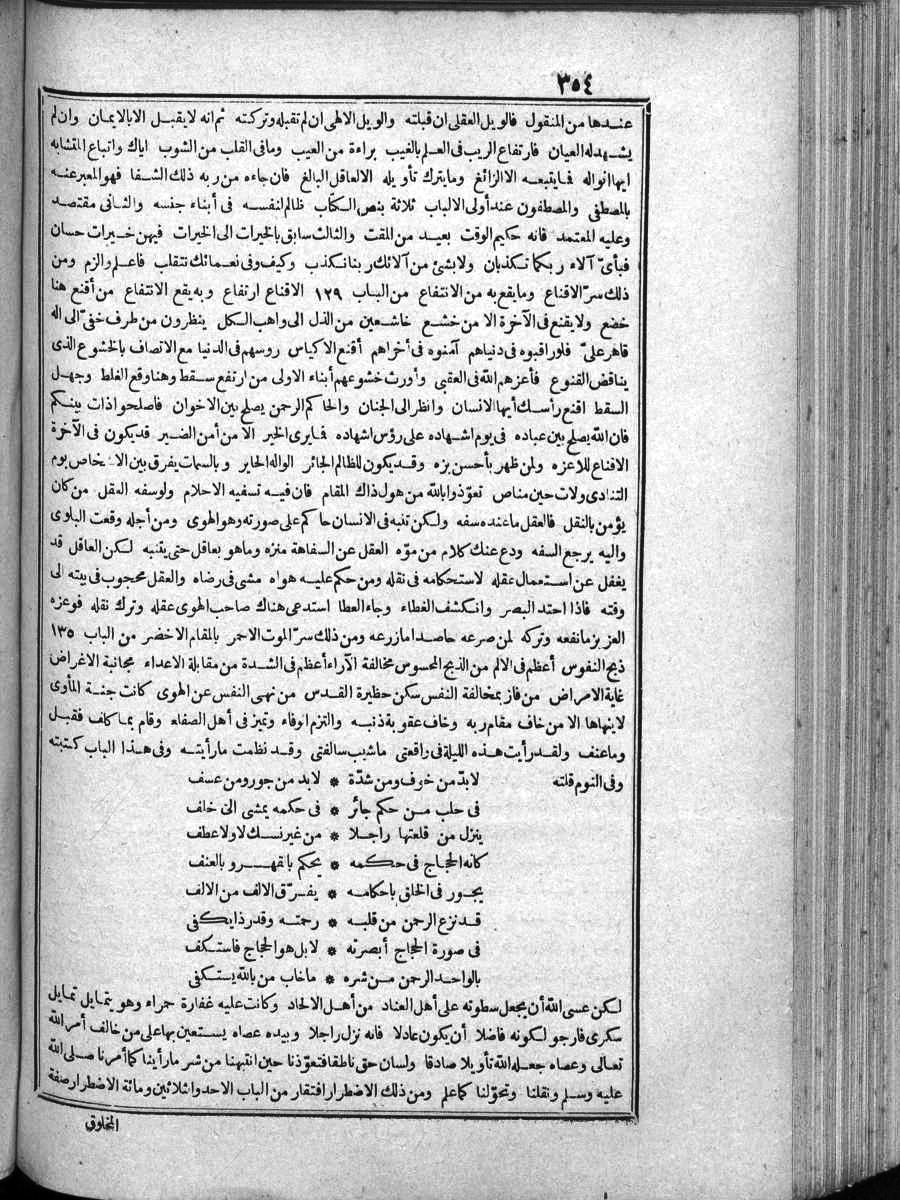 ٣٥٤
عندها من المنقول فالويل العقلى ان قبلته والويل الالهى ان لم تقبله وتركته ثم انه لا يقبل الا بالايمان وان لم
يشهد له العيان فارتفاع الريب فى العلم بالغيب براءة من العيب ومافى القلب من الشوب اياك واتباع المتشابه
ايها الواله فما يتبعه الا الزائغ وما يترك تأويله الا العاقل البالغ فان جاءه من ربه ذلك الشفا فهو المعبر عنه
بالمصطفى والمصطفون عند أولى الالباب ثلاثة بنص الكتاب ظالم لنفسه فى أبناء جنسه والثانى مقتصد
وعليه المعتمد فانه حكيم الوقت بعيد من المقت والثالث سابق بالخيرات الى الخيرات فيهن خيرات حسان
فبأىّ آلاء ربكما تكذبان ولا بشئ من آلائك ربنا نكذب وكيف وفى نعمائك نتقلب فاعلم والزم ومن
ذلك سرّ الاقناع وما يقع به من الانتفاع من الباب ١٢٩ الاقناع ارتفاع وبه يقع الانتفاع من أقنع هنا
خضع ولا يقنع فى الآخرة الا من خشع خاشعين من الذل الى واهب الكل ينظرون من طرف خفىّ الى اله
قاهر علىّ فلو راقبوه فى دنياهم آمنوه فى أخراهم أقنع الاكياس روسهم فى الدنيا مع الاتصاف بالخشوع الذى
يناقض القنوع فأعزهم الله فى العقبى وأورث خشوعهم أبناء الاولى من ارتفع سقط وهنا وقع الغلط وجهل
السقط اقنع رأسك أيها الانسان وانظر الى الجنان والحاكم الرحمن يصلح بين الاخوان فاصلحوا ذات بينكم
فان الله يصلح بين عباده فى يوم اشهاده على رؤس اشهاده فما يرى الخير الا من أمن الضير قد يكون فى الآخرة
الاقناع للاعزه ولمن ظهر بأحسن بزه وقد يكون للظالم الجائر الواله الحاير وبالسمات يفرق بين الاشخاص يوم
التنادى ولات حين مناص تعوّذوا بالله من هول ذاك المقام فان فيه تسفيه الاحلام ولوسفه العقل من كان
يؤمن بالنقل فالعقل ما عنده سفه ولكن تنبه فى الانسان حاكم على صورته وهو الهوى ومن أجله وقعت البلوى
واليه يرجع السفه ودع عنك كلام من موّه العقل عن السفاهة منزه وما هو بعاقل حتى يتنبه لكن العاقل قد
يغفل عن استعمال عقله لاستحكامه فى نقله ومن حكم عليه هواه مشى فى رضاه والعقل محجوب فى بيته الى
وقته فاذا احتد البصر وانكشف الغطاء وجاء العطا استدعى هناك صاحب الهوى عقله وترك نقله فوعزه
العزيز ما نفعه وتركه لمن صرعه حاصدا ما زرعه ومن ذلك سرّ الموت الاحمر بالمقام الاخضر من الباب ١٣٥
ذبح النفوس أعظم فى الالم من الذبح المحسوس مخالفة الآراء أعظم فى الشدة من مقابلة الاعداء مجانبة الاغراض
غاية الامراض من فاز بمخالفة النفس سكن حظيرة القدس من نهى النفس عن الهوى كانت جنة المأوى
لا ينهاها الا من خاف مقام ربه وخاف عقوبة ذنبه والتزم الوفاء وتميز فى أهل الصفاء وقام بما كلف فقبل
وما عنف ولقد رأيت هذه الليلة فى واقعتى ما شيب سالفتى وقد نظمت ما رأيته وفى هذا الباب كتبته
وفى النوم قلته لابدّ من خوف ومن شدّة * لابد من جور ومن عسف
فى حلب من حكم جائر * فى حكمه يمشى الى خلف
ينزل من قلعتها راجلا * من غير نسك لا ولا عطف
كانه الحجاج فى حكمه * يحكم بالقهر و بالعنف
يجور فى الخلق باحكامه * يفرّق الالف من الالف
قد نزع الرحمن من قلبه * رحمته وقدر ذا يكفى
فى صورة الحجاج أبصرته * لا بل هو الحجاج فاستكف
بالواحد الرحمن من شره * ما خاب من بالله يستكفى
لكن عسى الله أن يجعل سطوته على أهل العناد من أهل الالحاد وكانت عليه غفارة حمراء وهو يتمايل تمايل
سكرى فارجو لكونه فاضلا أن يكون عادلا فانه نزل راجلا وبيده عصاه يستعين بها على من خالف أمر الله
تعالى وعصاه جعله الله تأويلا صادقا ولسان حق ناطقا فتعوّذنا حين انتبهنا من شر ما رأينا كما أمرنا صلى الله
عليه وسلم ونقلنا وتحوّلنا كما علم ومن ذلك الاضطرار افتقار من الباب الاحد وثلاثين ومائة الاضطرار صفة
المخلوق